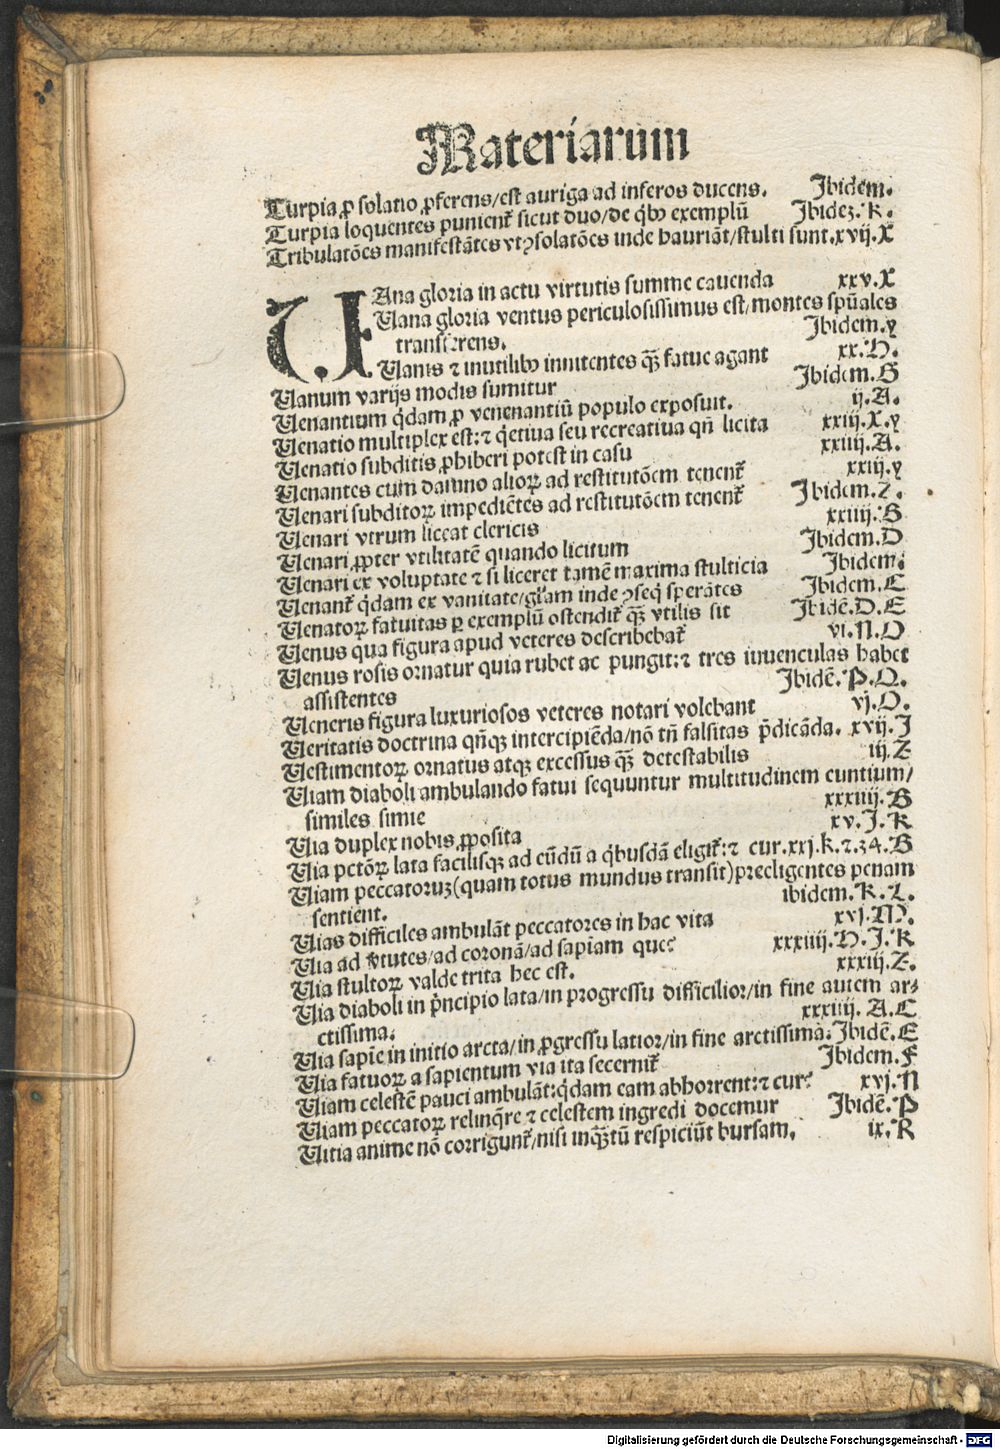 Materiarum
Turpia ꝓ solatio ꝓferens/est auriga ad inferos ducens. Ibidem.
Turpia loquentes punient᷑ sicut duo/de q̇bꝰ exemplū Ibidez. K.
Tribulatōes manifestātes vt ꝯsolatōes inde hauriāt/stulti sunt.xvij.X
VAna gloria in actu virtutis summe cauenda xxv.X
Uana gloria ventus periculosissimus est/montes spūales
transferens. Ibidem.y
Uanis ⁊ inutilibꝰ innitentes qȝ̄ fatue agant xx.H.
Uanum varijs modis sumitur Ibidem.G
Uenantium q̇dam ꝓ venenantiū populo exposuit. ij.A.
Uenatio multiplex est:⁊ q̇etiua seu recreatiua qn̄ licita xxiij.X.y
Uenatio subditis ꝓhiberi potest in casu xxiiij.A.
Uenantes cum damno alioꝝ ad restitutōem tenent᷑ xxiij.y
Uenari subditoꝝ impediētes ad restitutōem tenent᷑ Ibidem.Z.
Uenari vtrum liceat clericis xxiiij.B
Uenari ꝓpter vtilitatē quando licitum Ibidem.D
Uenari ex voluptate ⁊ si liceret tamē maxima stulticia Ibidem:
Uenant᷑ q̇dam ex vanitate/gl̄iam inde ꝯseq̇ sperātes Ibidem.C
Uenatoꝝ fatuitas ꝑ exemplū ostendit᷑ qȝ̄ vtilis sit Ibidē.D.E
Uenus qua figura apud veteres describebat᷑ vi.N.O
Uenus rosis ornatur quia rubet ac pungit:⁊ tres iuuenculas habet
assistentes Ibidē.P.Q.
Ueneris figura luxuriosos veteres notari volebant vj.O.
Ueritatis doctrina qn̄qꝫ intercipiēda/nō tn̄ falsitas p̄dicāda. xvij.J
Uestimentoꝝ ornatus atqꝫ excessus qȝ̄ detestabilis iij.Z
Uiam diaboli ambulando fatui sequuntur multitudinem euntium/
similes simie xxxiiij.B
Uia duplex nobis ꝓposita xv.J.K
Uia pctōꝝ lata facilisqꝫ ad eūdū a q̇busdā eligit᷑:⁊ cur.xxj.k.⁊.34.B
Uiam peccatoruz(quam totus mundus transit)preeligentes penam
sentient. ibidem.K.L.
Uias difficiles ambulāt peccatores in hac vita xvj.M.
Uia ad v̄tutes/ad coronā/ad sapiam que: xxxiiij.H.J.K
Uia stultoꝝ valde trita hec est. xxxiij.Z.
Uia diaboli in p̄ncipio lata/in progressu difficilior/in fine autem ar-
ctissima: xxxiiij. A.C
Uia sapiē in initio arcta/in ꝓgressu latior/in fine arctissima: Ibidē.E
Uia fatuoꝝ a sapientum via ita secernit᷑ Ibidem.F
Uiam celestē pauci ambulāt:q̇dam eam abhorrent:⁊ cur: xvj.N
Uiam peccatoꝝ relinq̄re ⁊ celestem ingredi docemur Ibidē.P
Uitia anime nō corrigunt᷑/nisi inqȝ̄tū respiciūt bursam. ix.R
Digitalisierung gefördert durch die Deutsche Forschungsgemeinschaft - DFG